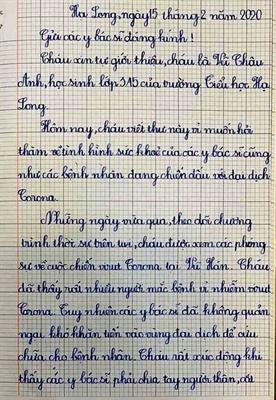 Hạ Long, ngày 15 tháng 2 năm 2020
Gửi các y bác sĩ đáng kính!
Cháu xin tự giới thiệu, cháu là Vũ Châu
Anh, học sinh lớp 3A5 của trường Tiểu học Hạ
Long.
Hôm nay, cháu viết thư này vì muốn hỏi
thăm về tình hình sức khoẻ của các y bác sĩ cũng
như các bệnh nhân đang chiến đấu với đại dịch
Corona.
Những ngày vừa qua, theo dõi chương
trình thời sự trên tivi, cháu được xem các phóng
sự về cuộc chiến virut Corona tại Vũ Hán. Cháu
đã thấy rất nhiều người mắc bệnh vì nhiễm virut
Corona. Tuy nhiên các y bác sĩ đã không quản
ngại khó khăn tiến vào vùng đại dịch để cứu
chữa cho bệnh nhân. Cháu rất xúc động khi
thấy các y bác sĩ phải chia tay người thân, cắt